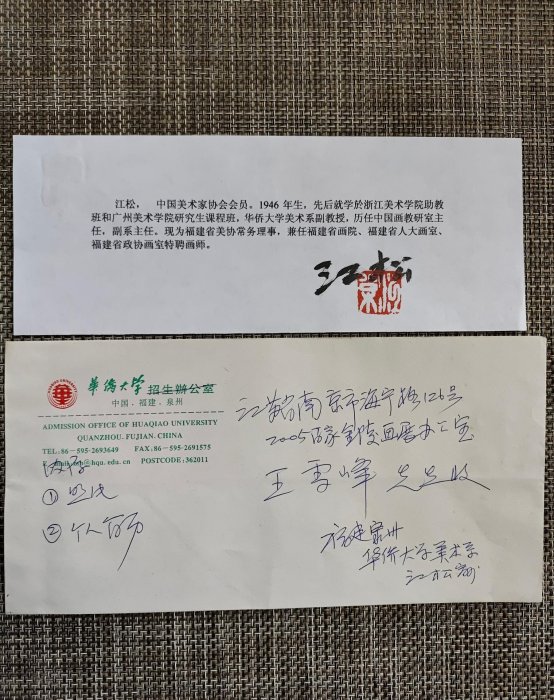 江松，　中国美术家协会会员。1946 年生，先后就学於浙江美术学院助教
班和广州美术学院研究生课程班，华侨大学美术系副教授，历任中国画教研室主
任，副系主任。现为福建省美协常务理事，兼任福建省画院、福建省人大画室、
福建省政协画室特聘画师。
江松
華僑大学 招生辦公室
中国·福建·泉州
ADMISSION OFFICE OF HUAQIAO UNIVERSITY
QUANZHOU. FUJIAN. CHINA
TEL: 86－595-2693649 FAX: 86－595-2691575
E-mail: @hqu.edu.cn POSTCODE: 362011
内有
①照片
②个人简历
江苏省南京市海宁路126号
2005百家金陵画展办公室
王雪峰 先生收
福建泉州
华侨大学美术系
江松